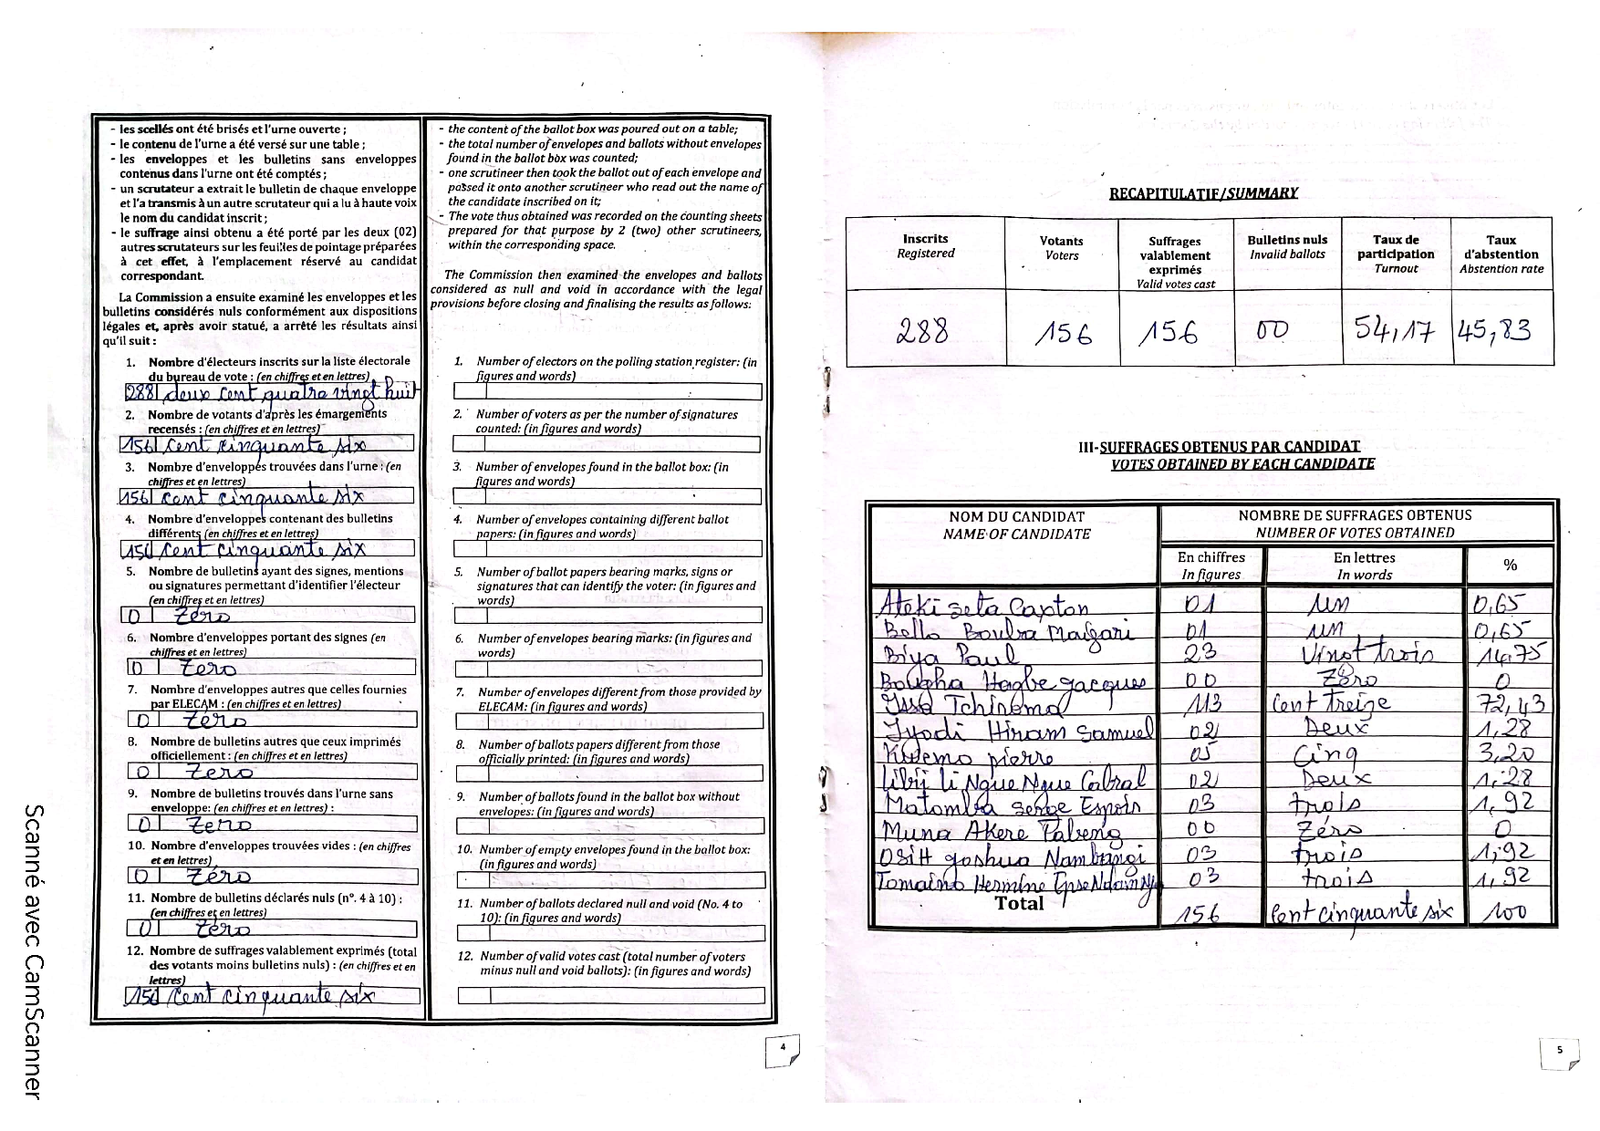 - les scellés ont été brisés et l'urne ouverte ;
- le contenu de l'urne a été versé sur une table ;
- les enveloppes et les bulletins sans enveloppes
contenus dans l'urne ont été comptés ;
- un scrutateur a extrait le bulletin de chaque enveloppe
et l'a transmis à un autre scrutateur qui a lu à haute voix
le nom du candidat inscrit ;
- le suffrage ainsi obtenu a été porté par les deux (02)
autres scrutateurs sur les feuilles de pointage préparées
à cet effet, à l'emplacement réservé au candidat
correspondant.
La Commission a ensuite examiné les enveloppes et les
bulletins considérés nuls conformément aux dispositions
légales et, après avoir statué, a arrêté les résultats ainsi
qu'il suit :
1. Nombre d'électeurs inscrits sur la liste électorale
du bureau de vote : (en chiffres et en lettres)
288 deux cent quatre vingt huit
2. Nombre de votants d'après les émargements
recensés : (en chiffres et en lettres)
156 cent cinquante six
3. Nombre d'enveloppes trouvées dans l'urne : (en
chiffres et en lettres)
156 cent cinquante six
4. Nombre d'enveloppes contenant des bulletins
différents (en chiffres et en lettres)
156 cent cinquante six
5. Nombre de bulletins ayant des signes, mentions
ou signatures permettant d'identifier l'électeur
(en chiffres et en lettres)
0 Zero
6. Nombre d'enveloppes portant des signes (en
chiffres et en lettres)
0 Zero
7. Nombre d'enveloppes autres que celles fournies
par ELECAM : (en chiffres et en lettres)
0 Zero
8. Nombre de bulletins autres que ceux imprimés
officiellement : (en chiffres et en lettres)
0 Zero
9. Nombre de bulletins trouvés dans l'urne sans
enveloppe: (en chiffres et en lettres) :
0 Zero
10. Nombre d'enveloppes trouvées vides : (en chiffres
et en lettres)
0 Zéro
11. Nombre de bulletins déclarés nuls (n°. 4 à 10) :
(en chiffres et en lettres)
0 Zéro
12. Nombre de suffrages valablement exprimés (total
des votants moins bulletins nuls) : (en chiffres et en
lettres)
156 cent cinquante six
- the content of the ballot box was poured out on a table;
- the total number of envelopes and ballots without envelopes
found in the ballot box was counted;
- one scrutineer then took the ballot out of each envelope and
passed it onto another scrutineer who read out the name of
the candidate inscribed on it;
- The vote thus obtained was recorded on the counting sheets
prepared for that purpose by 2 (two) other scrutineers,
within the corresponding space.
The Commission then examined the envelopes and ballots
considered as null and void in accordance with the legal
provisions before closing and finalising the results as follows:
1. Number of electors on the polling station register: (in
figures and words)
2. Number of voters as per the number of signatures
counted: (in figures and words)
3. Number of envelopes found in the ballot box: (in
figures and words)
4. Number of envelopes containing different ballot
papers: (in figures and words)
5. Number of ballot papers bearing marks, signs or
signatures that can identify the voter: (in figures and
words)
6. Number of envelopes bearing marks: (in figures and
words)
7. Number of envelopes different from those provided by
ELECAM: (in figures and words)
8. Number of ballots papers different from those
officially printed: (in figures and words)
9. Number of ballots found in the ballot box without
envelopes: (in figures and words)
10. Number of empty envelopes found in the ballot box:
(in figures and words)
11. Number of ballots declared null and void (No. 4 to
10): (in figures and words)
12. Number of valid votes cast (total number of voters
minus null and void ballots): (in figures and words)
4
Scanné avec CamScanner
RECAPITULATIF/SUMMARY
Inscrits Registered | Votants Voters | Suffrages valablement exprimés Valid votes cast | Bulletins nuls Invalid ballots | Taux de participation Turnout | Taux d'abstention Abstention rate
288 156 156 00 54,17 45,83
III-SUFFRAGES OBTENUS PAR CANDIDAT
VOTES OBTAINED BY EACH CANDIDATE
NOM DU CANDIDAT NOMBRE DE SUFFRAGES OBTENUS
NAME OF CANDIDATE NUMBER OF VOTES OBTAINED
En chiffres En lettres %
In figures In words
Ateki seta Caxton 01 un 0,65
Bello Bouba Maigari 01 un 0,65
Biya Paul 23 Vingt trois 14,75
Bougha Hagbe jacques 00 Zéro 0
Issa Tchiroma 113 Cent treize 72,43
Iyodi Hiram Samuel 02 Deux 1,28
Kwemo pierre 05 Cinq 3,20
Libii Li Ngue Ngue Cabral 02 Deux 1,28
Matomba serge Espoir 03 trois 1,92
Muna Akere Tabeng 00 Zéro 0
OSIH Joshua Nambangi 03 trois 1,92
Tomaino Hermine Epse Ndam Njoya 03 trois 1,92
Total 156 Cent cinquante six 100
5